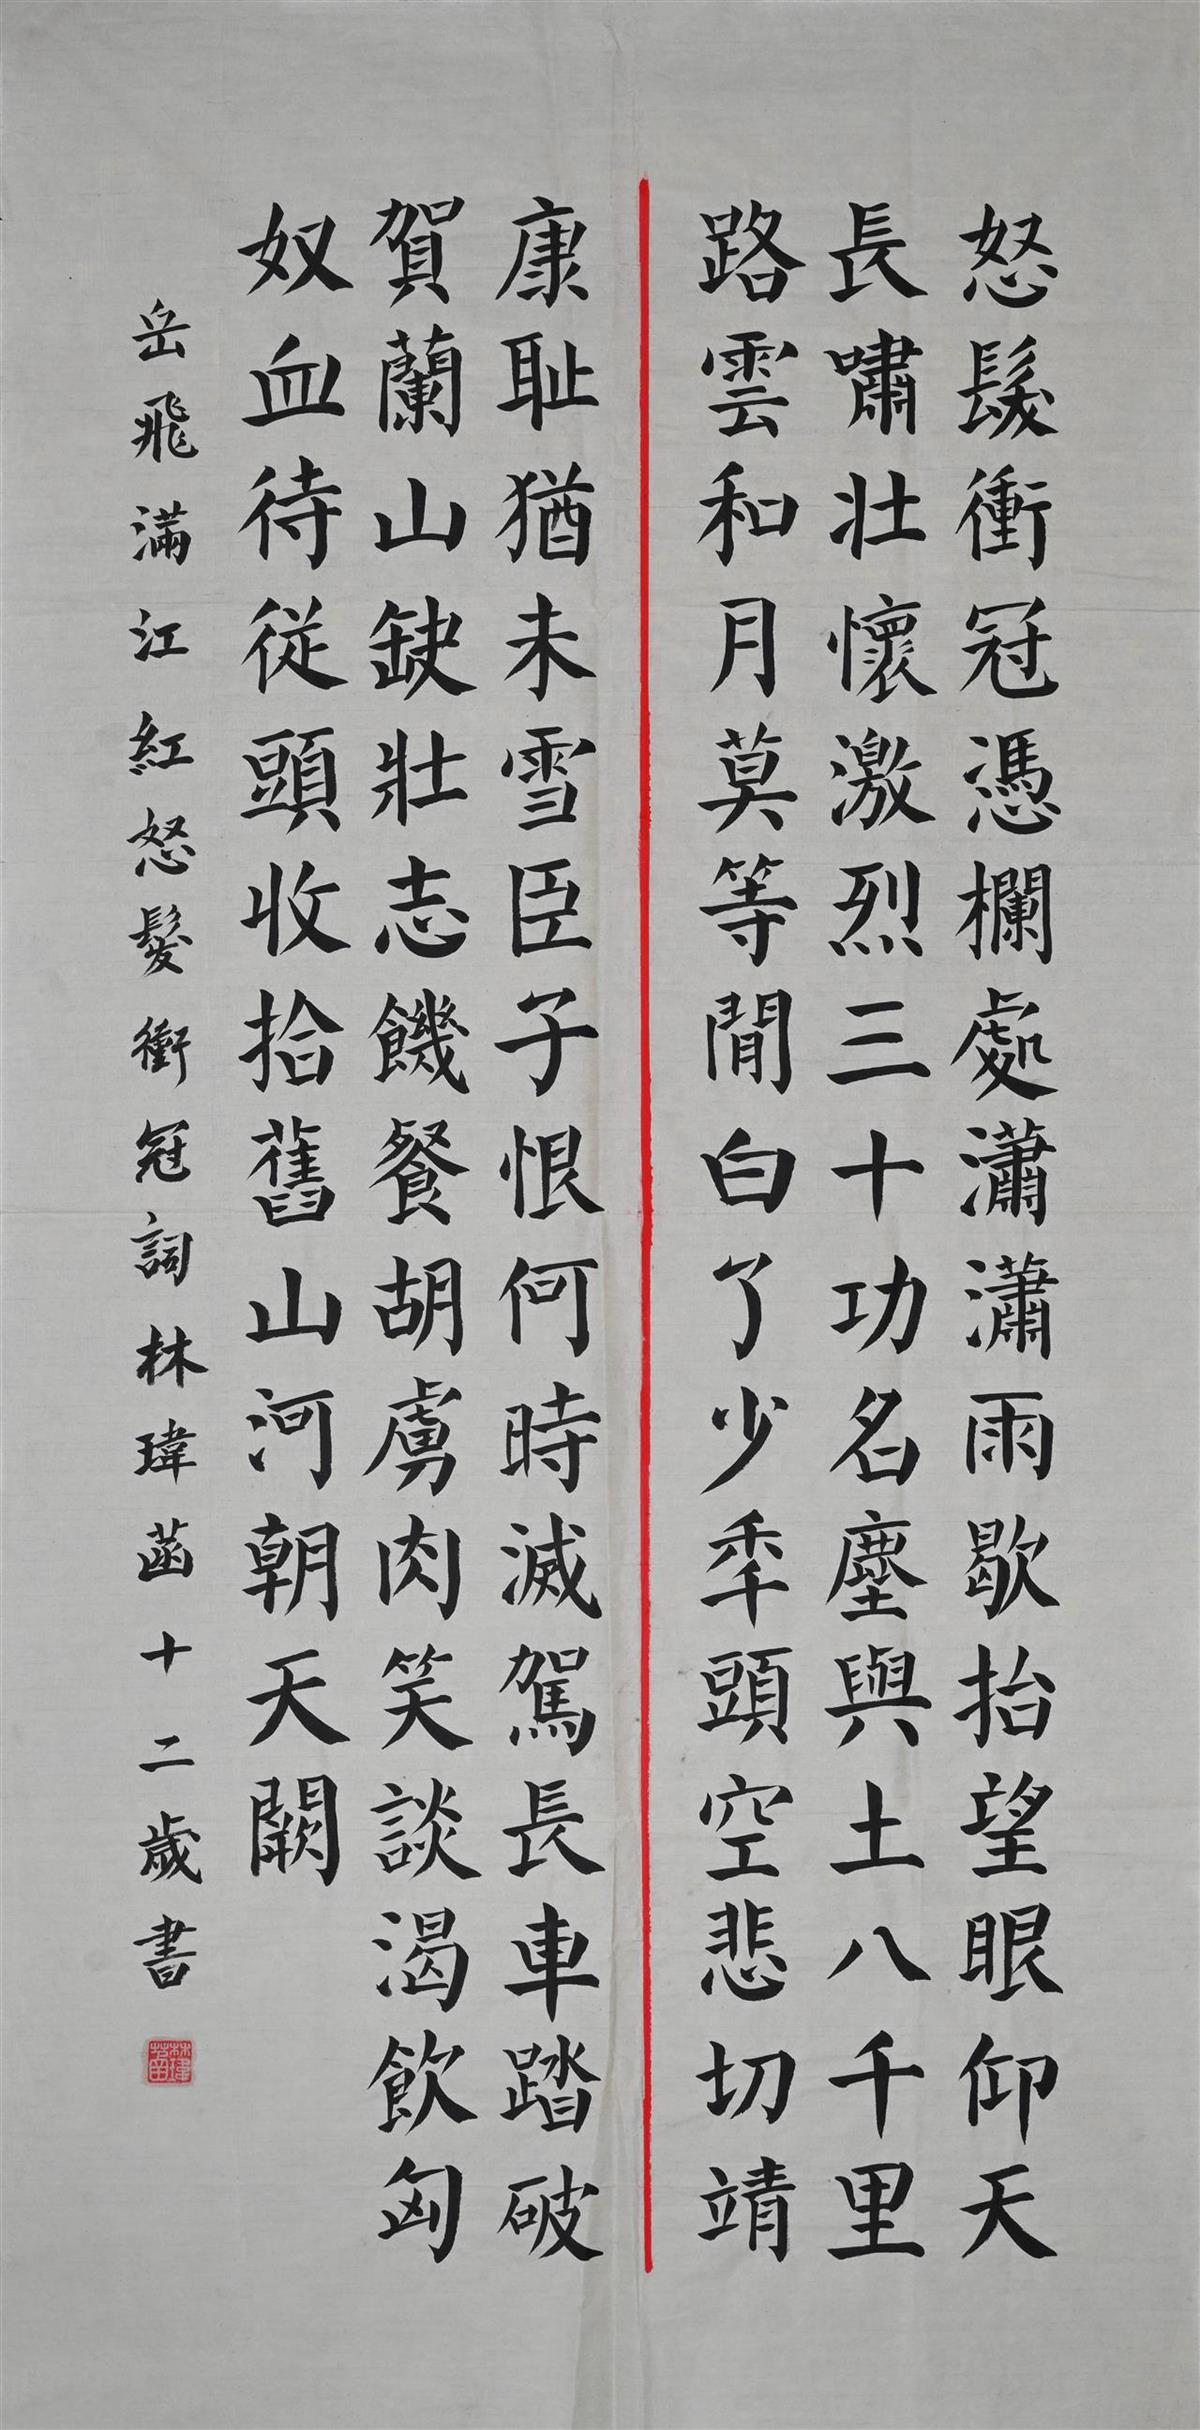 怒髮衝冠憑欄處瀟瀟雨歇抬望眼仰天
長嘯壮懷激烈三十功名塵與土八千里
路雲和月莫等閒白了少秊頭空悲切靖
康耻猶未雪臣子恨何時滅駕長車踏破
賀蘭山缺壯志饑餐胡虜肉笑談渴飲匈
奴血待従頭收拾舊山河朝天闕
岳飛滿江紅怒髮衝冠詞林瑋菡十二歲書
林瑋菡